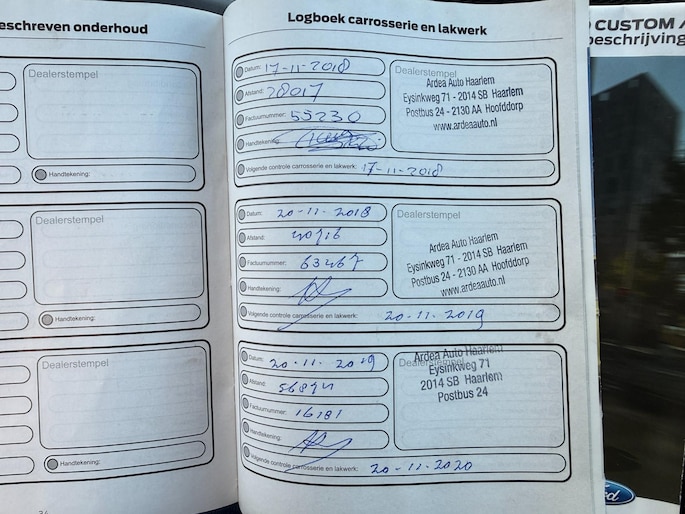 eschreven onderhoud
Dealerstempel
Handtekening:
Dealerstempel
Handtekening:
Dealerstempel
Handtekening:
34
Logboek carrosserie en lakwerk
Datum: 17-11-2018
Afstand: 28017
Factuurnummer: 55230
Handtekening:
Volgende controle carrosserie en lakwerk: 17-11-2018
Dealerstempel
Ardea Auto Haarlem
Eysinkweg 71 - 2014 SB Haarlem
Postbus 24 - 2130 AA Hoofddorp
www.ardeaauto.nl
Datum: 20-11-2018
Afstand: 40716
Factuurnummer: 63467
Handtekening:
Volgende controle carrosserie en lakwerk: 20-11-2019
Dealerstempel
Ardea Auto Haarlem
Eysinkweg 71 - 2014 SB Haarlem
Postbus 24 - 2130 AA Hoofddorp
www.ardeaauto.nl
Datum: 20-11-2019
Afstand:
Factuurnummer: 16181
Handtekening:
Volgende controle carrosserie en lakwerk: 20-11-2020
Dealerstempel
Ardea Auto Haarlem
Eysinkweg 71
2014 SB Haarlem
Postbus 24
CUSTOM
beschrijving
Ford